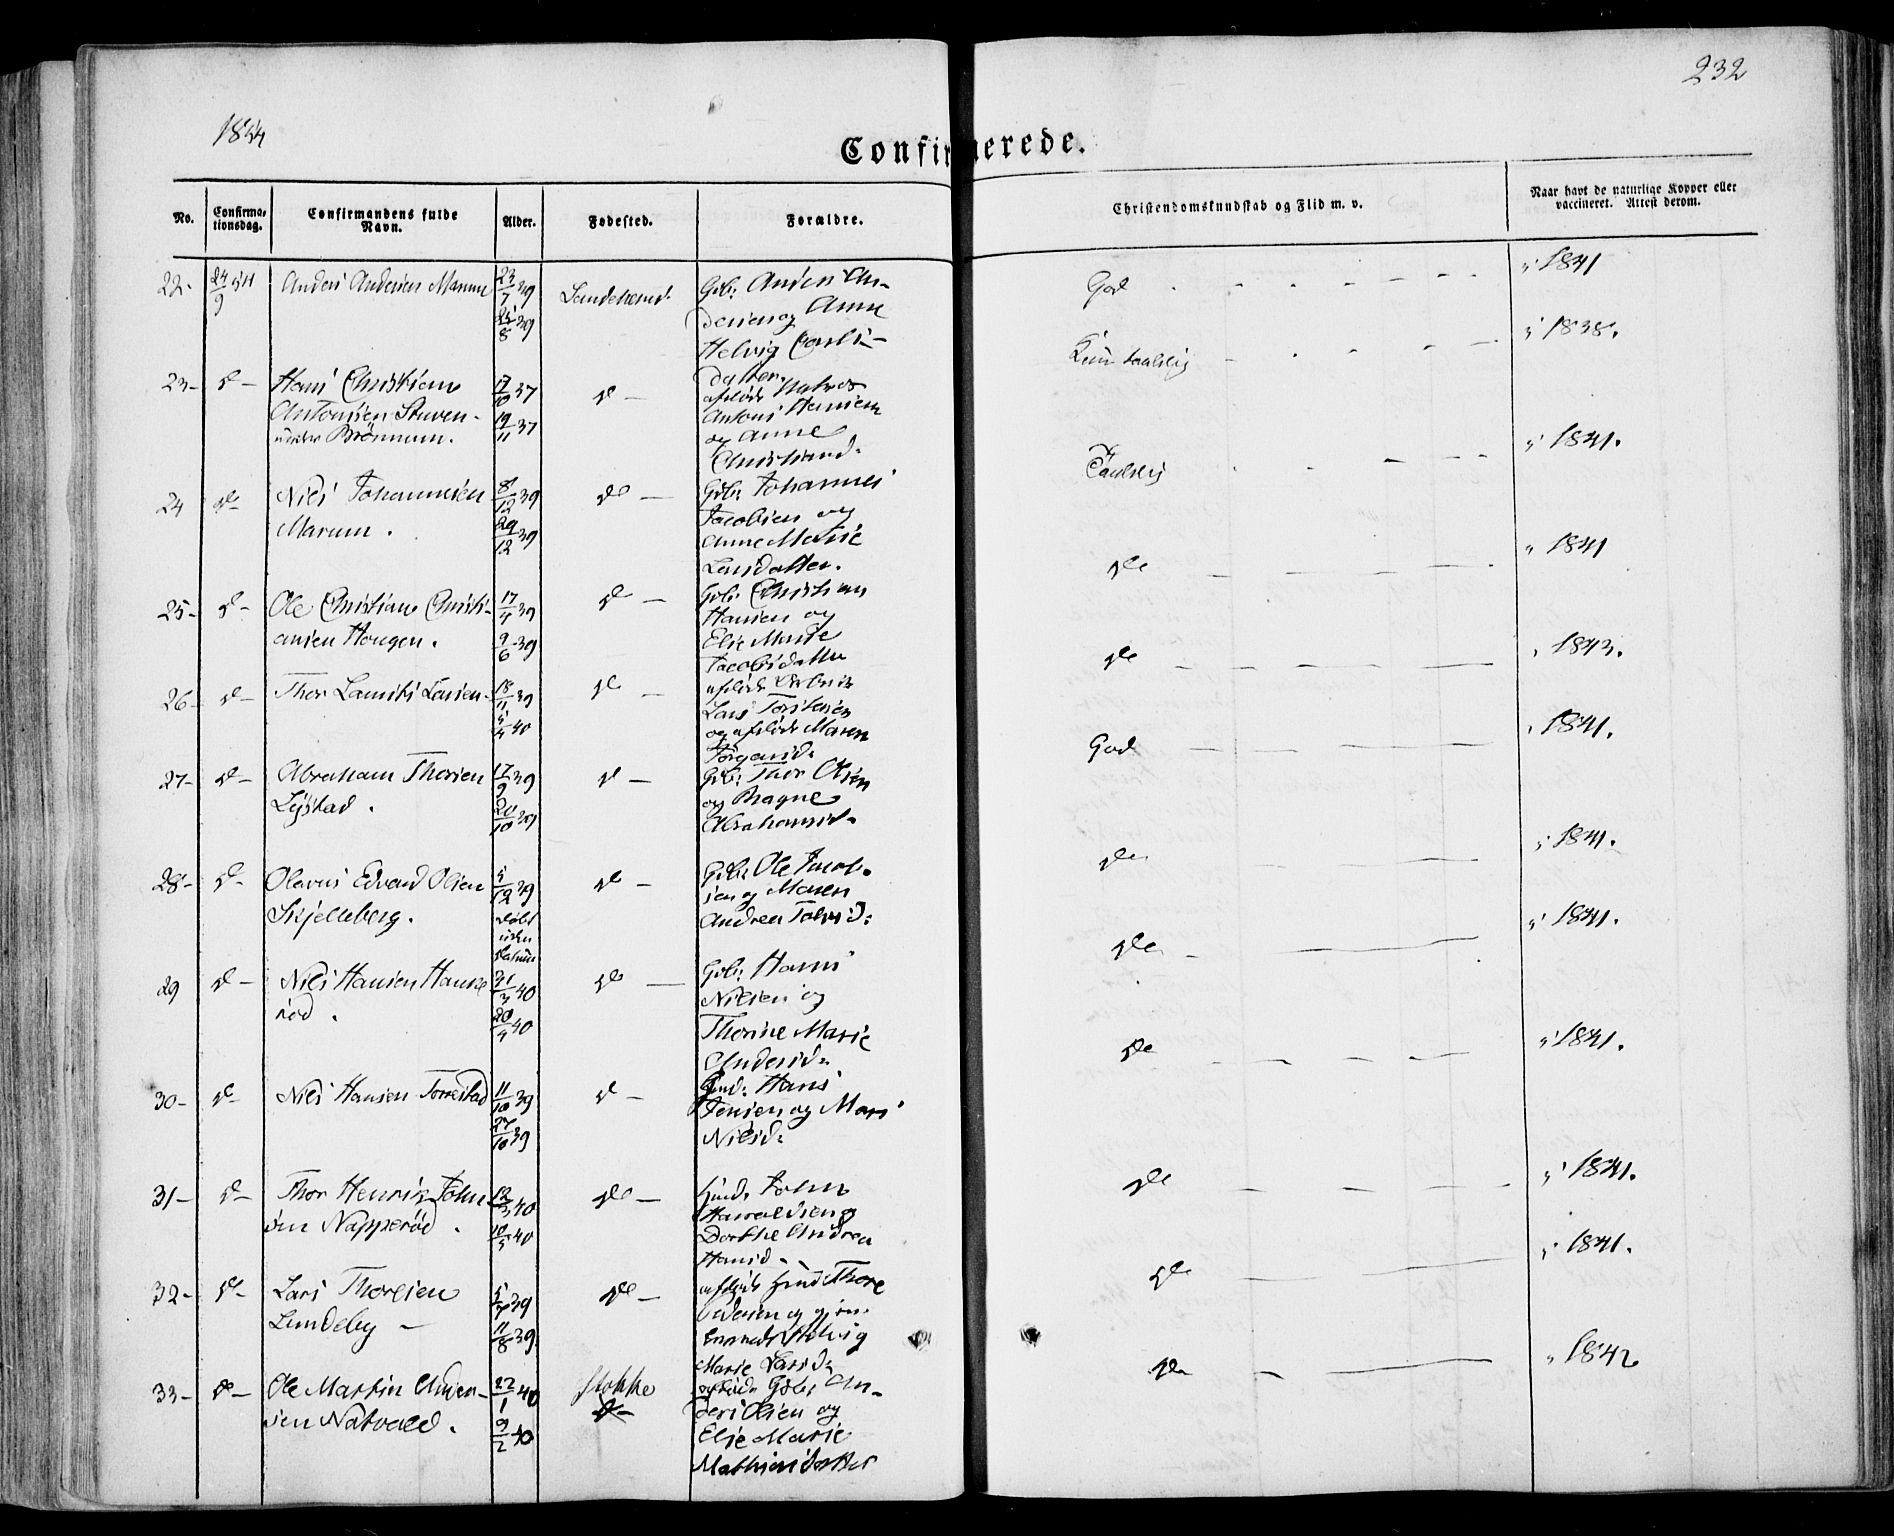 232
1854
Confirmerede.
No.
Confirma-
tionsdag.
Confirmandens fulde
Navn.
Alder.
Fødested.
Forældre.
Christendomskundskab og Flid m. v.
Naar havt de naturlige Kopper eller
vaccineret. Attest derom.
22- 24/9 54 Anders Andersen Marum 23/7 39 Sandeherred Gbr: Anders An-
25/8 39 dersen og Anne
Helvig Carls-
datter
God - - - - - - " 1841
23- do - Hans Christian 17/10 37 do - afdøde Matros
Antonsen Stuven- 19/11 37 Antoni Hansen
under Brönnum. og Anne
Christiansd.
Kun taalelig - - - - - " 1838.
24 do - Niels Johannesen 8/12 39 do - Gbr: Johannes
Marum. 29/12 39 Jacobsen og
Anne Marie
Larsdatter.
Taalelig - - - - - " 1841.
25- do - Ole Christian Christi- 17/4 39 do - Gbr: Christian
ansen Haugen. 9/6 39 Hansen og
Else Marie
Jacobsdatter
do - - - - " 1841
26- do - Thor Laurits Larsen 18/11 39 do - afdøde
5/4 40 Lars Torstensen
og afdøde Maren
Jörgensd.
do - - - - - - " 1843.
27- do - Abraham Thorsen 17/9 39 do - Gbr: Thor Olsen
Lystad. 20/10 39 og Ragne
Abrahamsd.
God - - - - - " 1841.
28- do - Olavus Edvard Olsen 5/12 39 do - Gbr: Ole Jacob-
Skjelleberg. døbt sen og Maren
uden Andrea Johnsd:
Datum
do - - - - " 1841.
29 do - Niels Hansen Hauke- 31/3 40 do - Gbr: Hans
rød. 20/4 40 Nielsen og
Thorine Marie
Andersd.
do - - - - " 1841.
30- do - Niels Hansen Torrestad 11/10 39 do - Hmd: Hans
27/10 39 Jensen og Mari
Nielsd:
do - - - - - " 1841.
31- do - Thor Henrik John- 12/3 40 do - Hmd: John
sen Napperød. 10/5 40 Haraldsen og
Dorthe Andrea
Hansd.
do - - - - - " 1841.
32- do - Lars Thoresen 5/7 39 do - afdøde Hmd: Thore
Lundeby - 11/8 39. Pedersen og gjen-
Helvig
Marie Larsd.
do - - - " 1841.
33- do - Ole Martin Ander- 22/1 40 Stokke afdøde Gbr: An-
sen Natvald. 9/2 40 ders Olsen og
Else Marie
Mathiasdatter
do - - - - " 1842